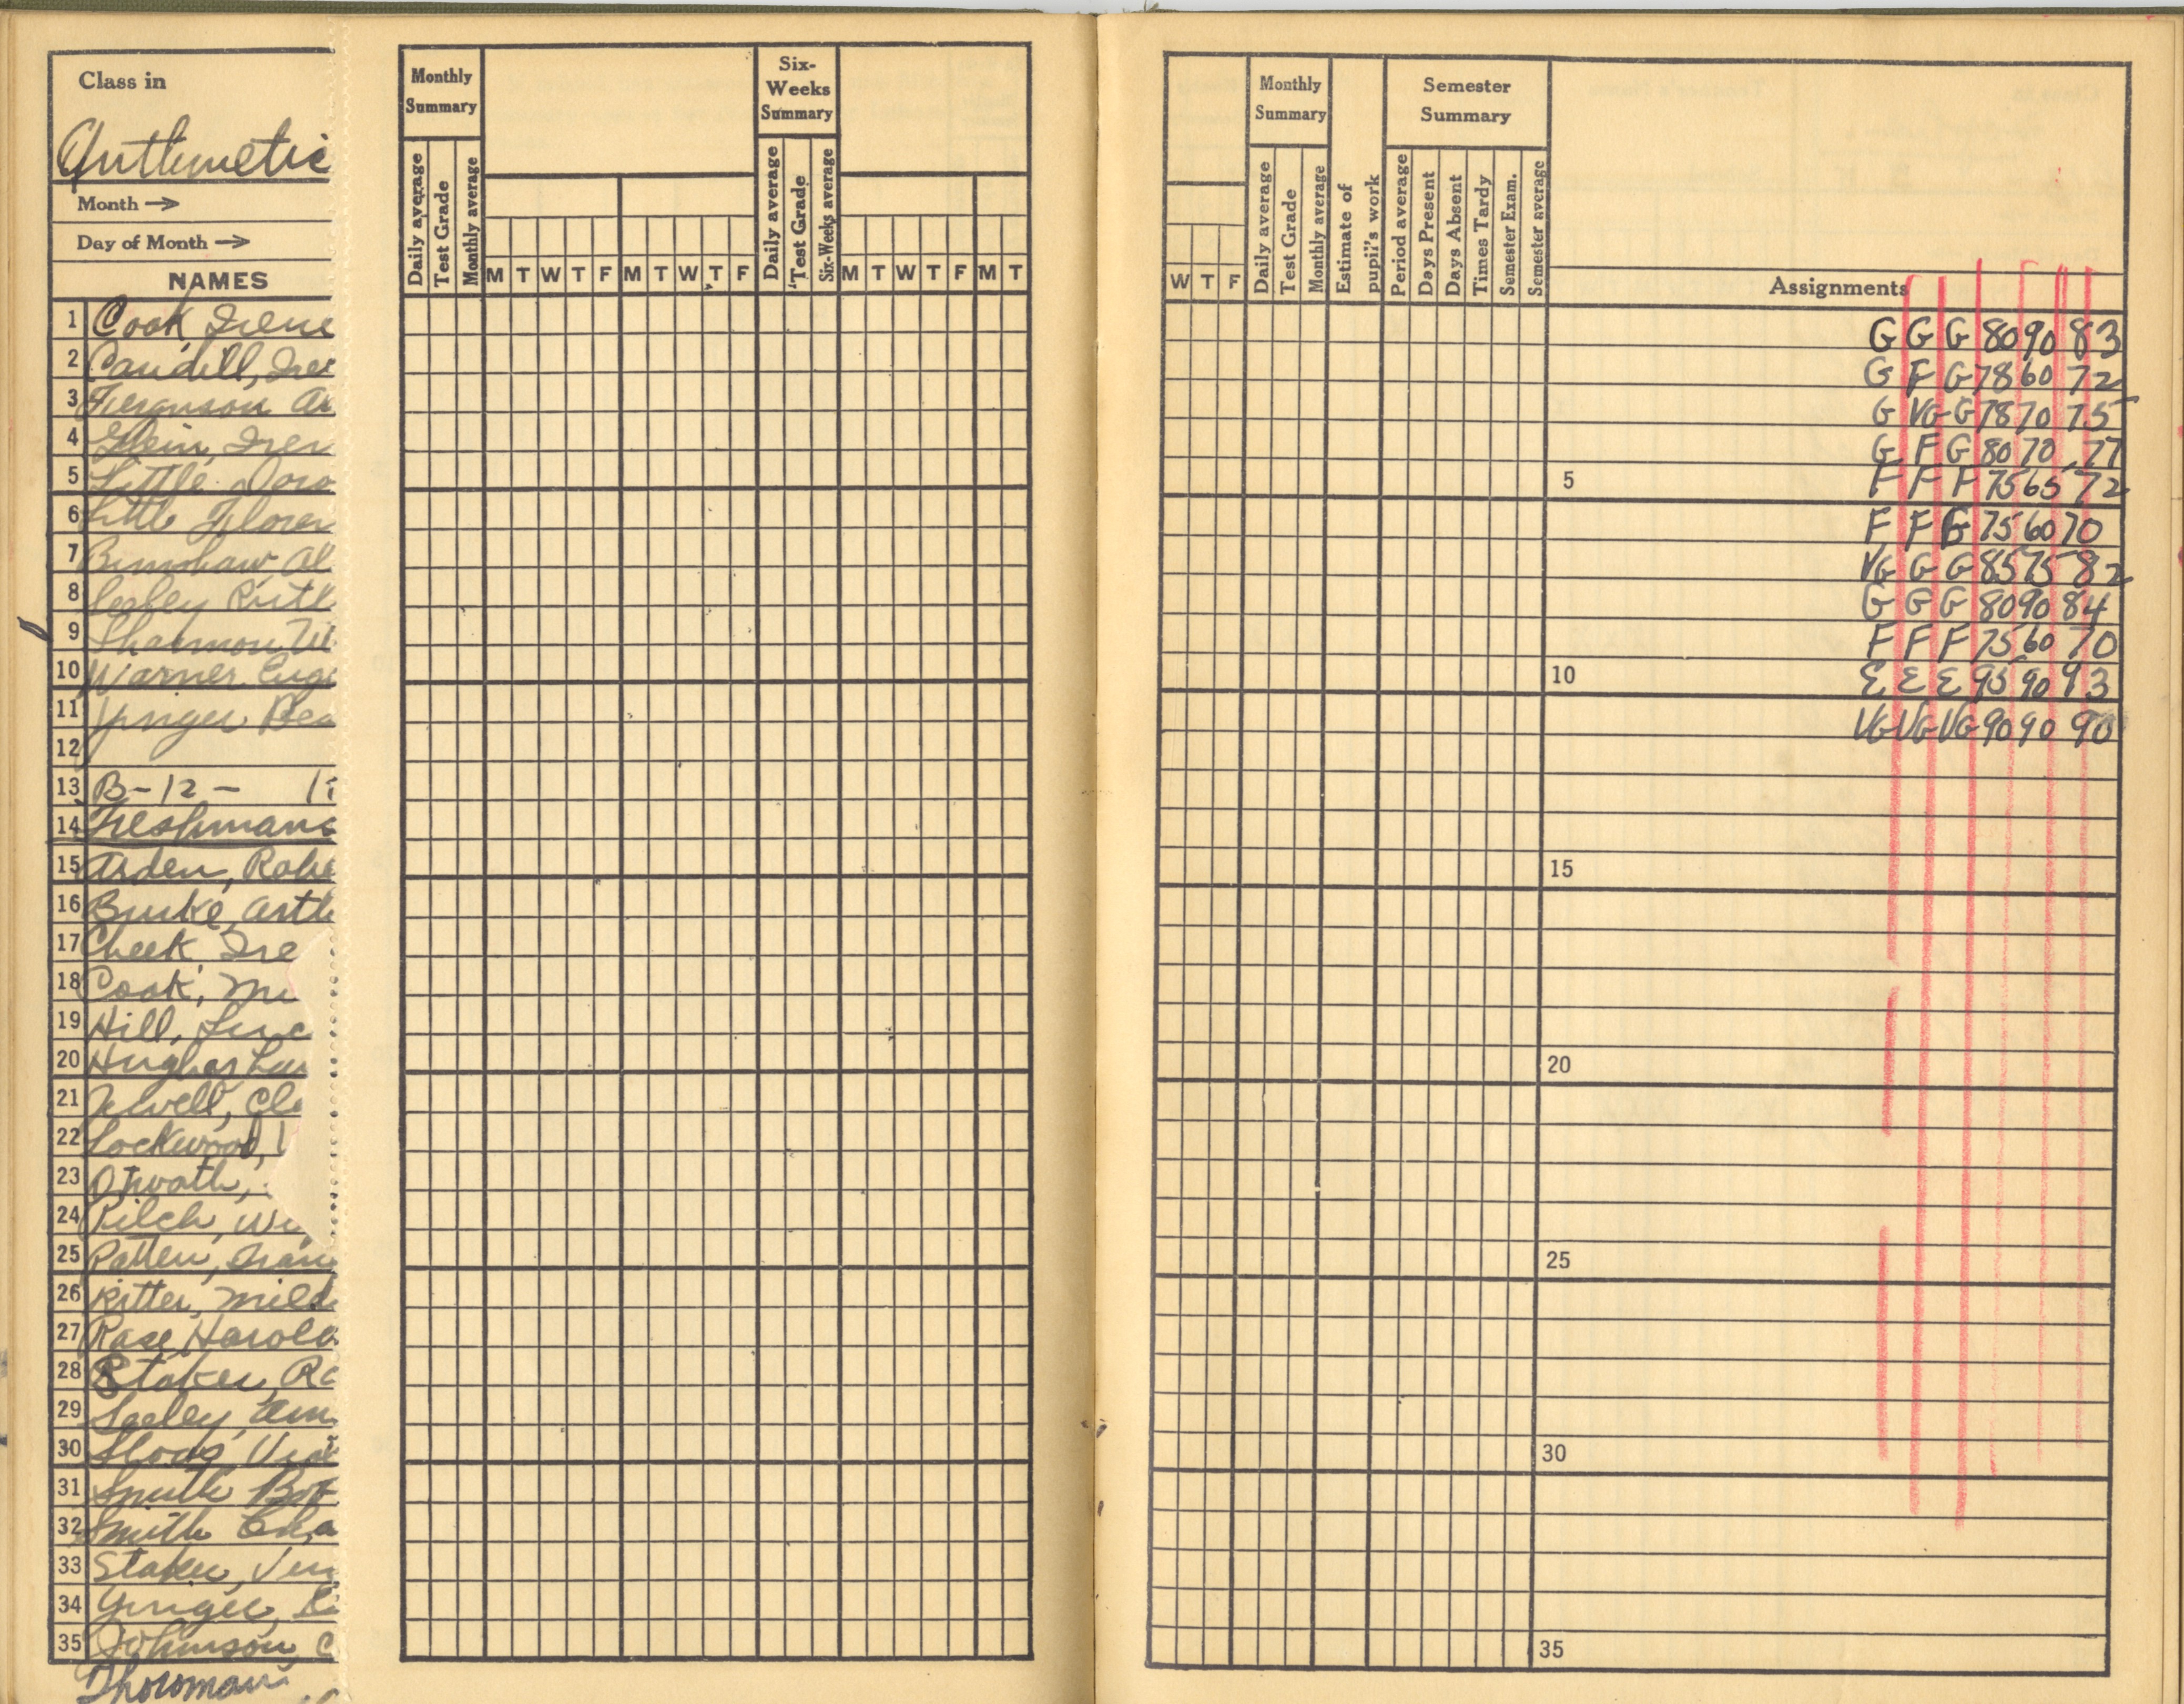 Class in
Arithmetic
Month →
Day of Month →
NAMES
1 Cook, Irene
2 Caudill, Ire
3 Ferguson Ar
4 Glein, Iren
5 Little Doro
6 Little Floren
7 Al
8 Seeley Ruth
9 Shannon
10 Warner Euge
11 Yinger Bea
12
13 B-12-
14 Freshmans
15 Arden, Robe
16 Burke, Arth
17 Cheek Ire
18 Cook, Mi
19 Hill,
20 Hughes
21 Jewell, Cla
22 Lockwood,
23
24 Pilch, Wi
25 Patten, Fran
26 Ritter, Mild
27 Rase Harold
28 Staker, Ro
29 Seeley,
30
31 Smith
32 Smith Cha
33 Staker, Ver
34 Yinger,
35 Johnson, C
Monthly Summary
Daily average
Test Grade
Monthly average
M T W T F M T W T F
Six-Weeks Summary
Daily average
Test Grade
Six-Weeks average
M T W T F M T
W T F
Monthly Summary
Daily average
Test Grade
Monthly average
Estimate of pupil's work
Semester Summary
Period average
Days Present
Days Absent
Times Tardy
Semester Exam.
Semester average
Assignments
G G G 80 90 83
G F G 78 60 72
G VG G 78 70 75
G F G 80 70 77
5 F F F 75 65 72
F F G 75 60 70
VG G G 85 75 82
G G G 80 90 84
F F F 75 60 70
10 E E E 95 90 93
VG VG VG 90 90 90
15
20
25
30
35